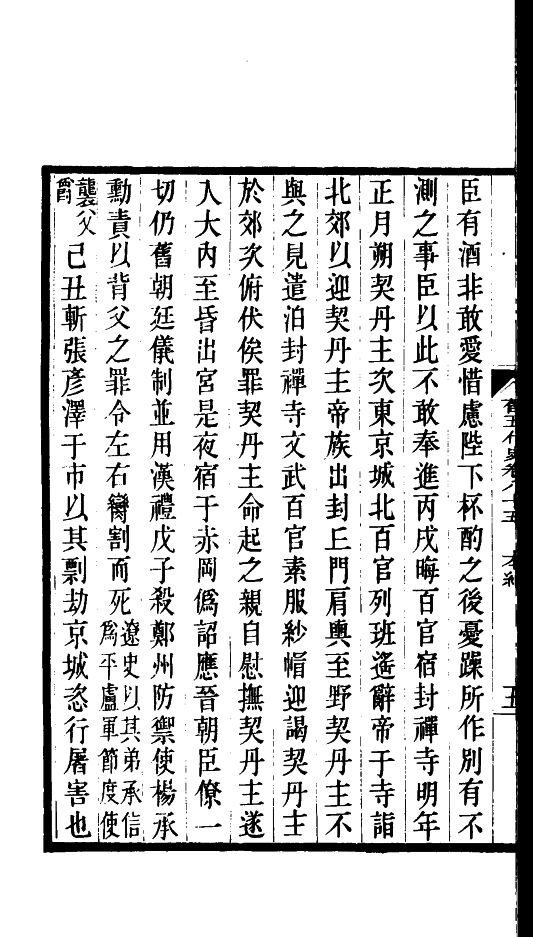 臣有酒非敢愛惜慮陛下杯酌之後憂躁所作別有不
測之事臣以此不敢奉進丙戌晦百官宿封禪寺明年
正月朔契丹主次東京城北百官列班遙辭帝于寺詣
北郊以迎契丹主帝族出封丘門肩輿至野契丹主不
與之見遣泊封禪寺文武百官素服紗帽迎謁契丹主
於郊次俯伏俟罪契丹主命起之親自慰撫契丹主遂
入大內至昏出宮是夜宿于赤岡僞詔應晉朝臣僚一
切仍舊朝廷儀制並用漢禮戊子殺鄭州防禦使楊承
勳責以背父之罪令左右臠割而死遼史以其弟承信
爲平盧軍節度使
襲父
爵
己丑斬張彥澤于市以其剽劫京城恣行屠害也
舊五代史卷八十五 本紀 五